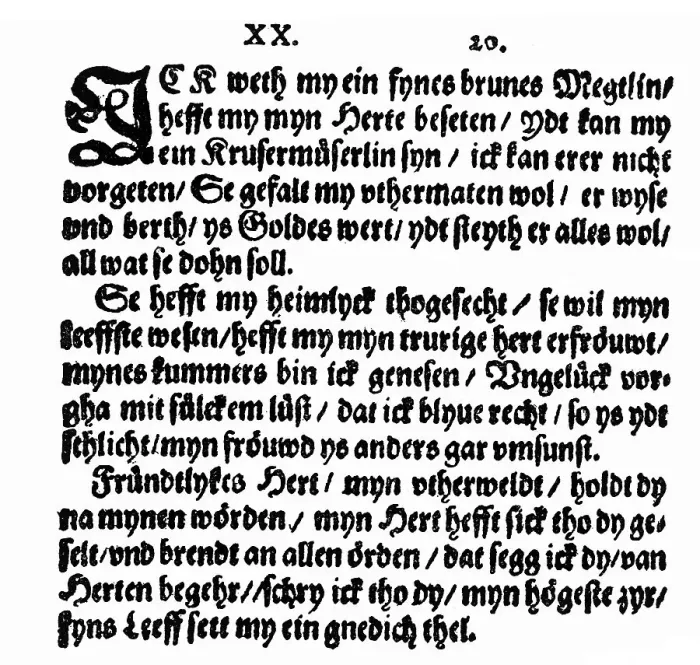 XX. 20.
ICK weth my ein fynes brunes Megtlin/
hefft my myn Herte beseten/ Ydt kan my
ein Krusermüserlin syn / ick kan erer nicht
vorgeten/ Se gefalt my vthermaten wol / er wyse
vnd berth/ ys Goldes wert/ ydt steyth er alles wol/
all wat se dohn soll.
Se hefft my heimlyck thogesecht / se wil myn
leeffste wesen/hefft my myn trurige hert erfröuwt/
mynes kummers bin ick genesen / Vngelück vor-
gha mit sülckem lüst / dat ick blyue recht / so ys ydt
schlicht/myn fröuwd ys anders gar vmsunst.
Fründtlykes Hert / myn vtherweldt / holdt dy
na mynen wörden / myn Hert hefft sick tho dy ge-
selt/vnd brendt an allen örden / dat segg ick dy/van
Herten begehr//schry ick tho dy/ myn högeste zyr/
fyns Leeff sett my ein gnedich thel.